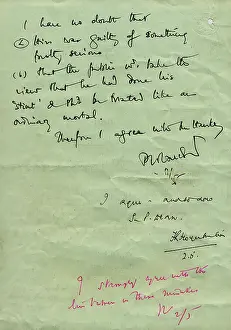 I have no doubt that
(a) Hess was guilty of something
pretty serious
(b) that the public wd. take the
view that he had done his
'stint' & shd be treated like an
ordinary mortal.
Therefore I agree with the
2/5
I agree -
Sir P. Dean.
2.5.
I strongly agree with the
line taken in these minutes
2/5